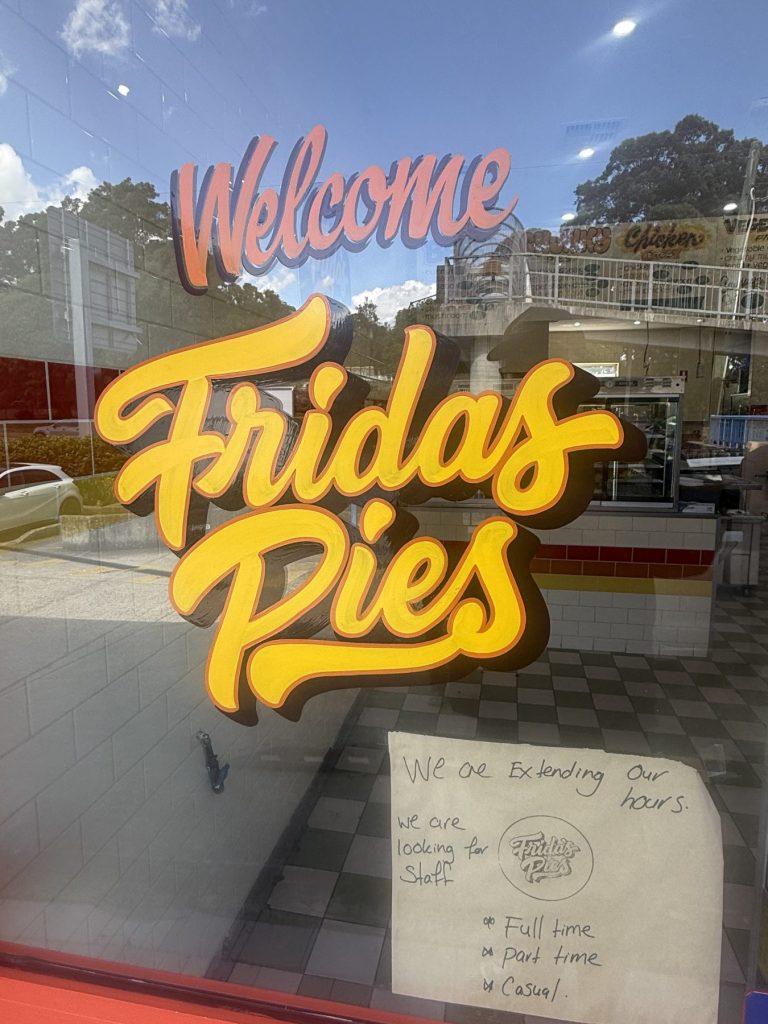 Welcome
Chicken
Fridas
Pies
We are Extending Our
hours.
We are
looking for
Staff
Fridas
Pies
Full time
Part time
Casual.